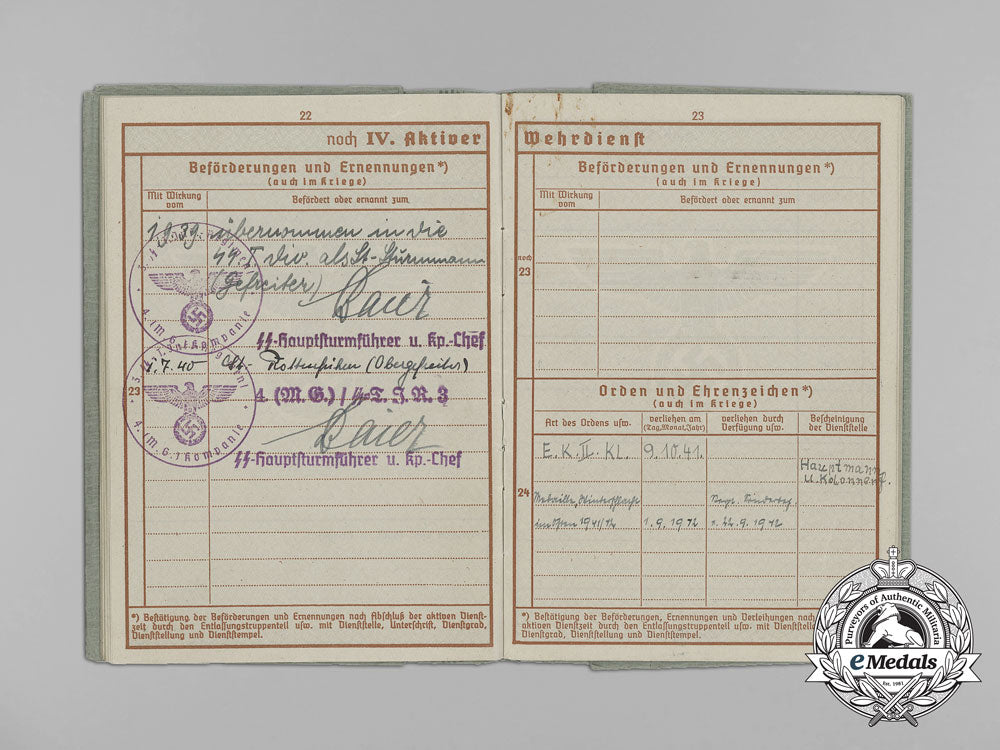 22
noch IV. Aktiver
Beförderungen und Ernennungen*)
(auch im Kriege)
Mit Wirkung
vom
Befördert oder ernannt zum
39. übernommen in die
SS. T Div. als SS-Sturmmann
(Gefreiter)
Baier
SS-Hauptsturmführer u. Kp.-Chef
1.7.40 Rottenführer (Obergefreiter)
23
4. (M.G.)/SS-T.J.R.3
Baier
SS-Hauptsturmführer u. Kp.-Chef
4. (M.G.) Kompanie
*) Bestätigung der Beförderungen und Ernennungen nach Abschluß der aktiven Dienst-
zeit durch den Entlassungstruppenteil usw. mit Dienststelle, Unterschrift, Dienstgrad,
Dienststellung und Dienststempel.
23
Wehrdienst
Beförderungen und Ernennungen*)
(auch im Kriege)
Mit Wirkung
vom
Befördert oder ernannt zum
noch
23
Orden und Ehrenzeichen*)
(auch im Kriege)
Art des Ordens usw.
verliehen am
(Tag, Monat, Jahr)
verliehen durch
Verfügung usw.
Bescheinigung
der Dienststelle
E.K.II.KL. 9.10.41.
Hauptmann
u. Kolonnenf.
24
Medaille, Winterschlacht
im Osten 1941/42 1.9.1942 v. 22.9.1942
*) Bestätigung der Beförderungen, Ernennungen und Verleihungen nach
aktiven Dienstzeit durch den Entlassungstruppenteil usw. mit Dienststelle
Dienstgrad, Dienststellung und Dienststempel.
Purveyors of Authentic Militaria
eMedals
Est. 1981